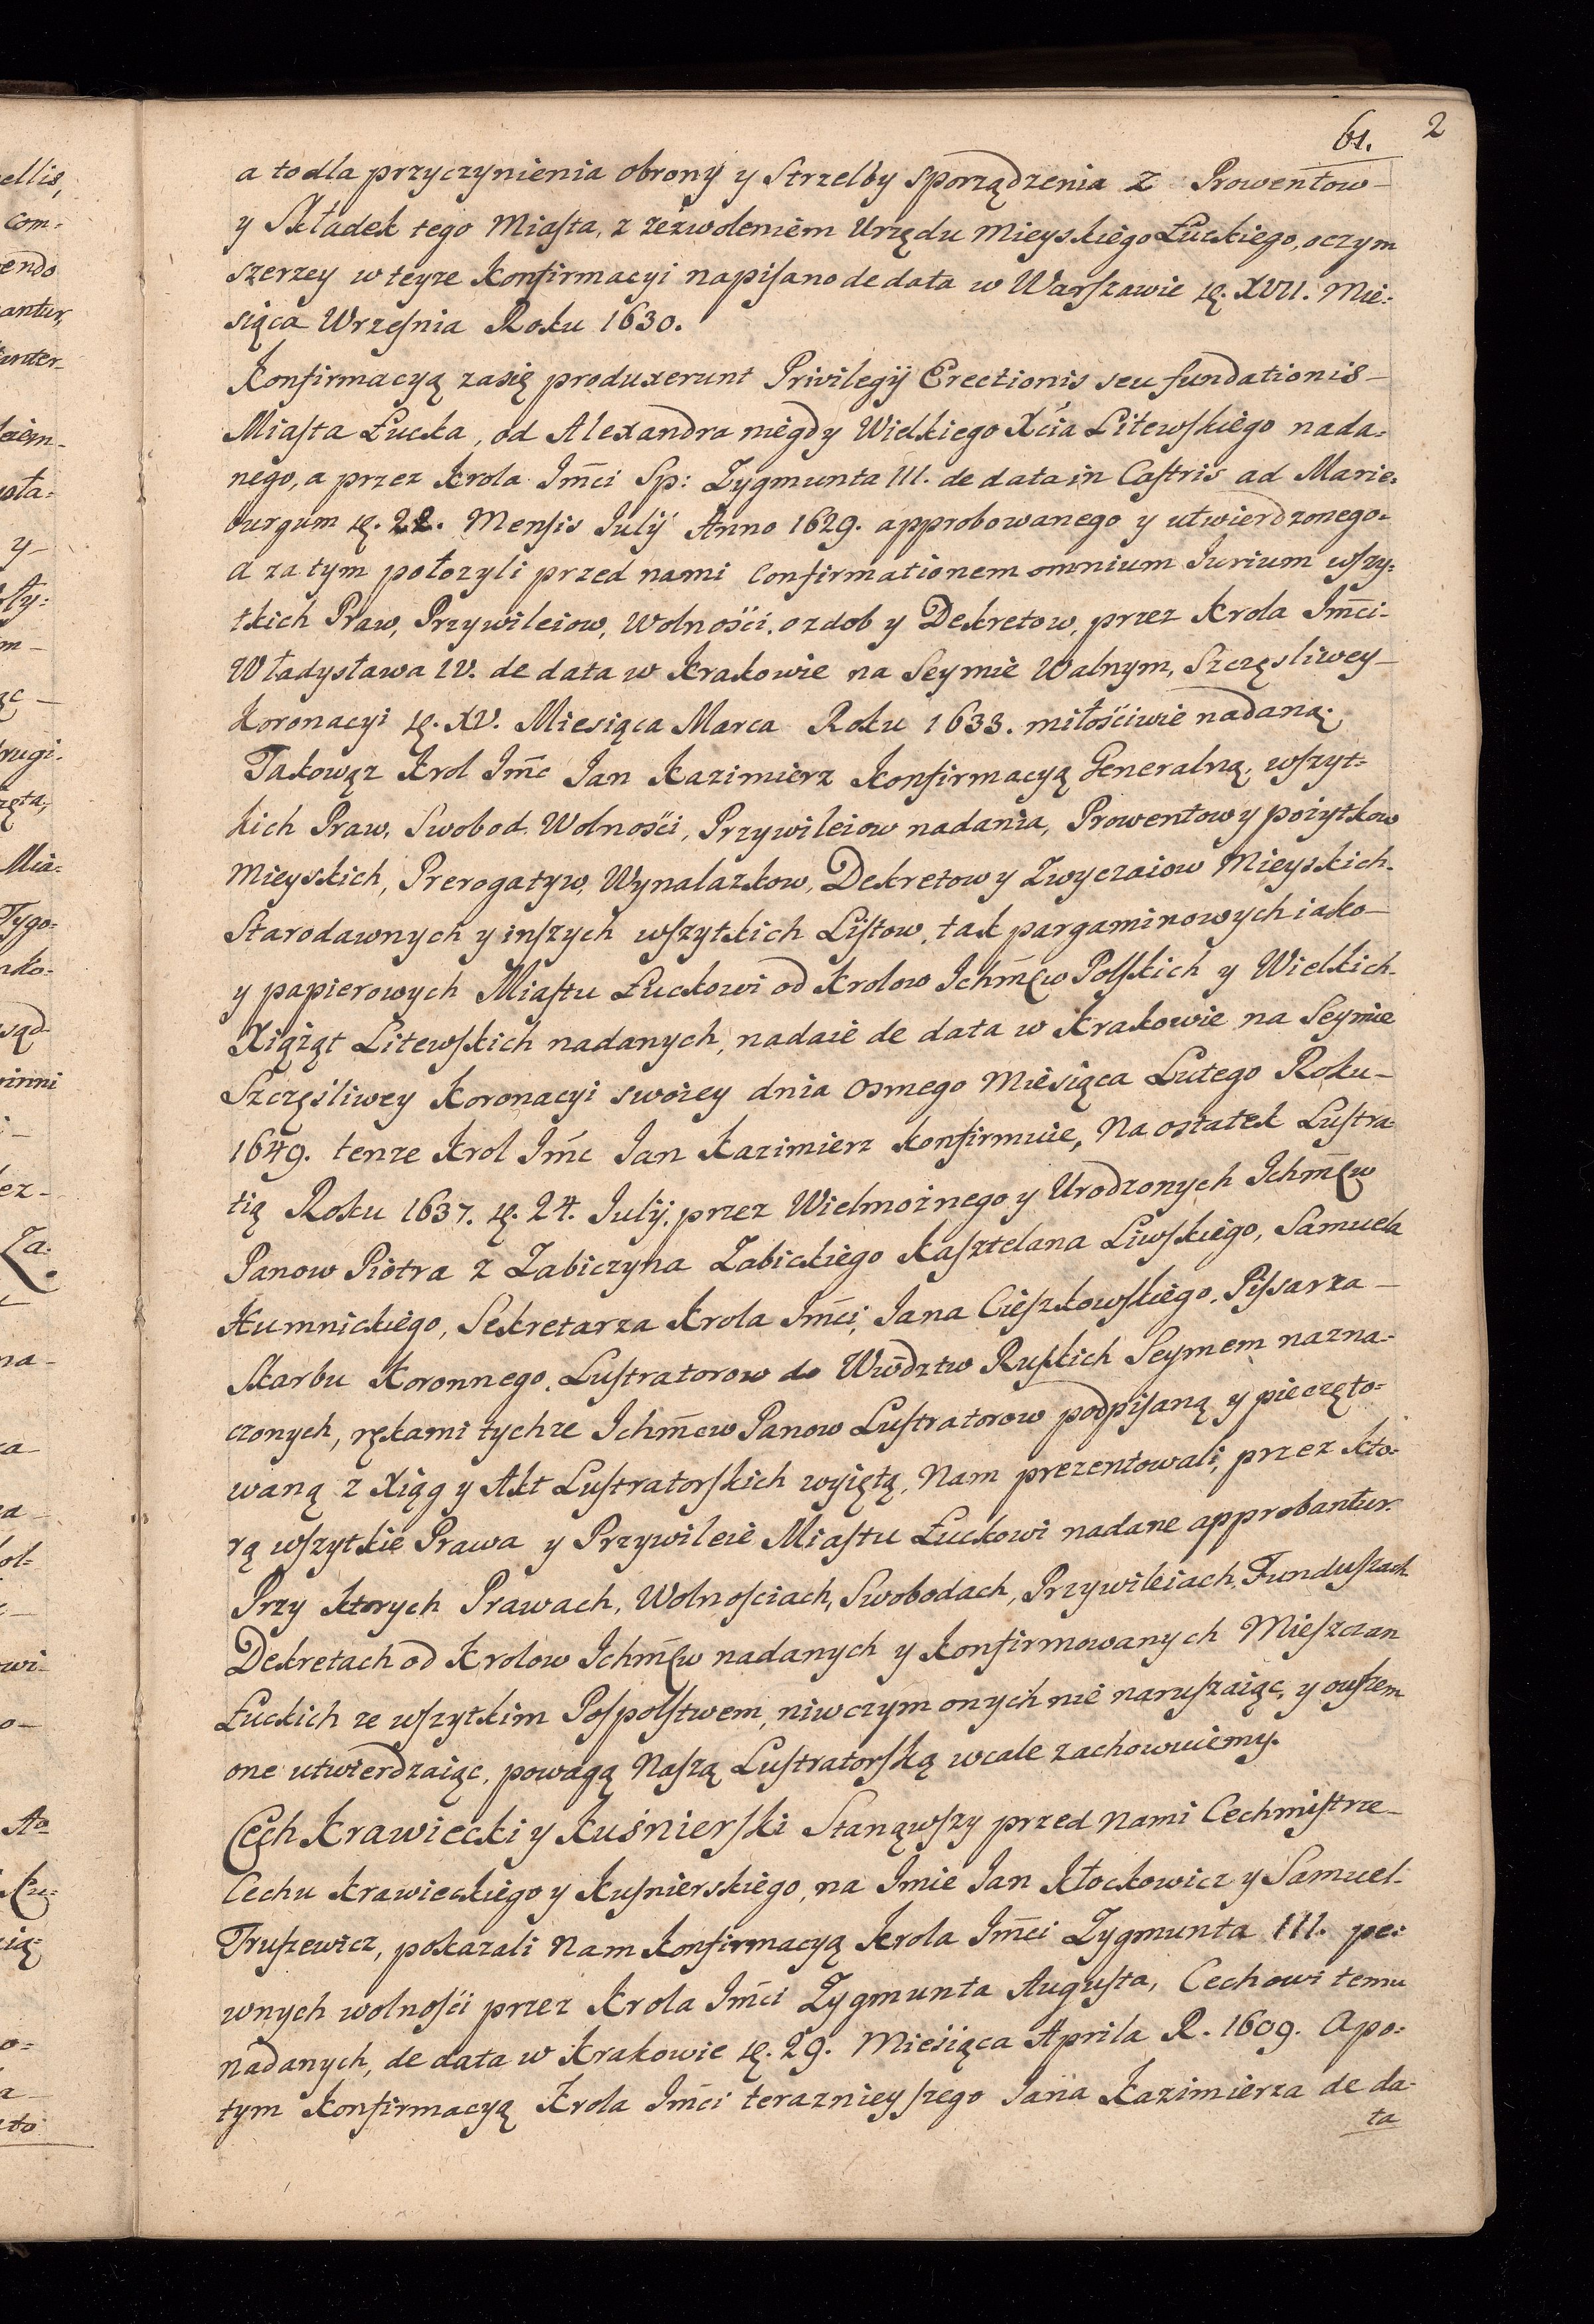 61. 2
a to dla przyczynienia obrony y Strzelby sporządzenia z Prowentow
y Składek tego Miasta, z zezwoleniem Urzędu Mieyskiego Łuckiego, o czym
szerzey w teyze Konfirmacyi napisano de data w Warszawie д. XVII. Mie=
siąca Wrzesnia Roku 1630.
Konfirmacyą zasię produxerunt Privilegij Erectionis seu fundationis
Miasta Łucka, od Alexandra niegdy Wielkiego Xćia Litewskiego nada=
nego, a przez Krola Jm̄ci Sp: Zygmunta III. de data in Castris ad Marie=
burgum д. 22. Mensis Julij Anno 1629. approbowanego y utwierdzonego=
a za tym połozyli przed nami Confirmationem omnium Jurium wszy=
tkich Praw, Przywileiow, Wolnośći, ozdob y Dekretow, przez Krola Jm̄ci=
Władysława IV. de data w Krakowie na Seymie Walnym, Szczęsliwey
Koronacyi д. XV. Miesiąca Marca Roku 1633. miłośćiwie nadaną.
Takowąz Krol Jm̄c Jan Kazimierz Konfirmacyą Generalną, wszyt=
kich Praw, Swobod, Wolnośći, Przywileiow nadania, Prowentow y pożytkow
Mieyskich, Prerogatyw, Wynalazkow, Dekretow y Zwyczaiow Mieyskich.
Starodawnych y inszych wszytkich Listow, tak pargaminowych iako
y papierowych Miastu Łuckowi od Krolow Ichm̄ćw Polskich y Wielkich.
Xiążąt Litewskich nadanych, nadaie de data w Krakowie na Seymie
Szczęśliwey Koronacyi swoiey dnia osmego Miesiąca Lutego Roku
1649. tenze Krol Jm̄c Jan Kazimierz konfirmuie, Na ostatek Lustra=
tią Roku 1637. д. 24. Julij. przez Wielmożnego y Urodzonych Ichm̄ćw
Panow Piotra z Zabiczyna Zabickiego Kasztelana Liwskiego, Samuela
Humnickiego, Sekretarza Krola Jm̄ci, Jana Cieszkowskiego, Pissarza
Skarbu Koronnego, Lustratorow do Wwodztw Ruskich Seymem nazna=
czonych, rękami tychze Ichm̄cw Panow Lustratorow podpisaną y pieczęto=
waną z Xiąg y Akt Lustratorskich wyiętą, Nam prezentowali, przez kto=
rą wszytkie Prawa y Przywileie Miastu Łuckowi nadane approbantur.
Przy ktorych Prawach, Wolnosciach, Swobodach, Przywileiach, Funduszach
Dekretach od Krolow Ichm̄ćw nadanych y konfirmowanych Mieszczan
Łuckich ze wszytkim Pospolstwem, niwczym onych nie naruszaiąc, y owszem
one utwierdzaiąc, powagą Naszą Lustratorską wcale zachowuiemy.
Cech Krawiecki y Kuśnierski Stanąwszy przed nami Cechmistrze
Cechu Krawieckiego y Kusnierskiego, na Imie Jan Kłockowicz y Samuel
Truszewicz, pokazali nam Konfirmacyą Krola Jm̄ci Zygmunta III. pe=
wnych wolnośći przez Krola Jm̄ci Zygmunta Augusta, Cechowi temu
nadanych, de data w Krakowie д. 29. Miesiąca Aprila R. 1609. a po=
tym Konfirmacyą Krola Jm̄ci terazniey szego Jana Kazimierza de da=
ta